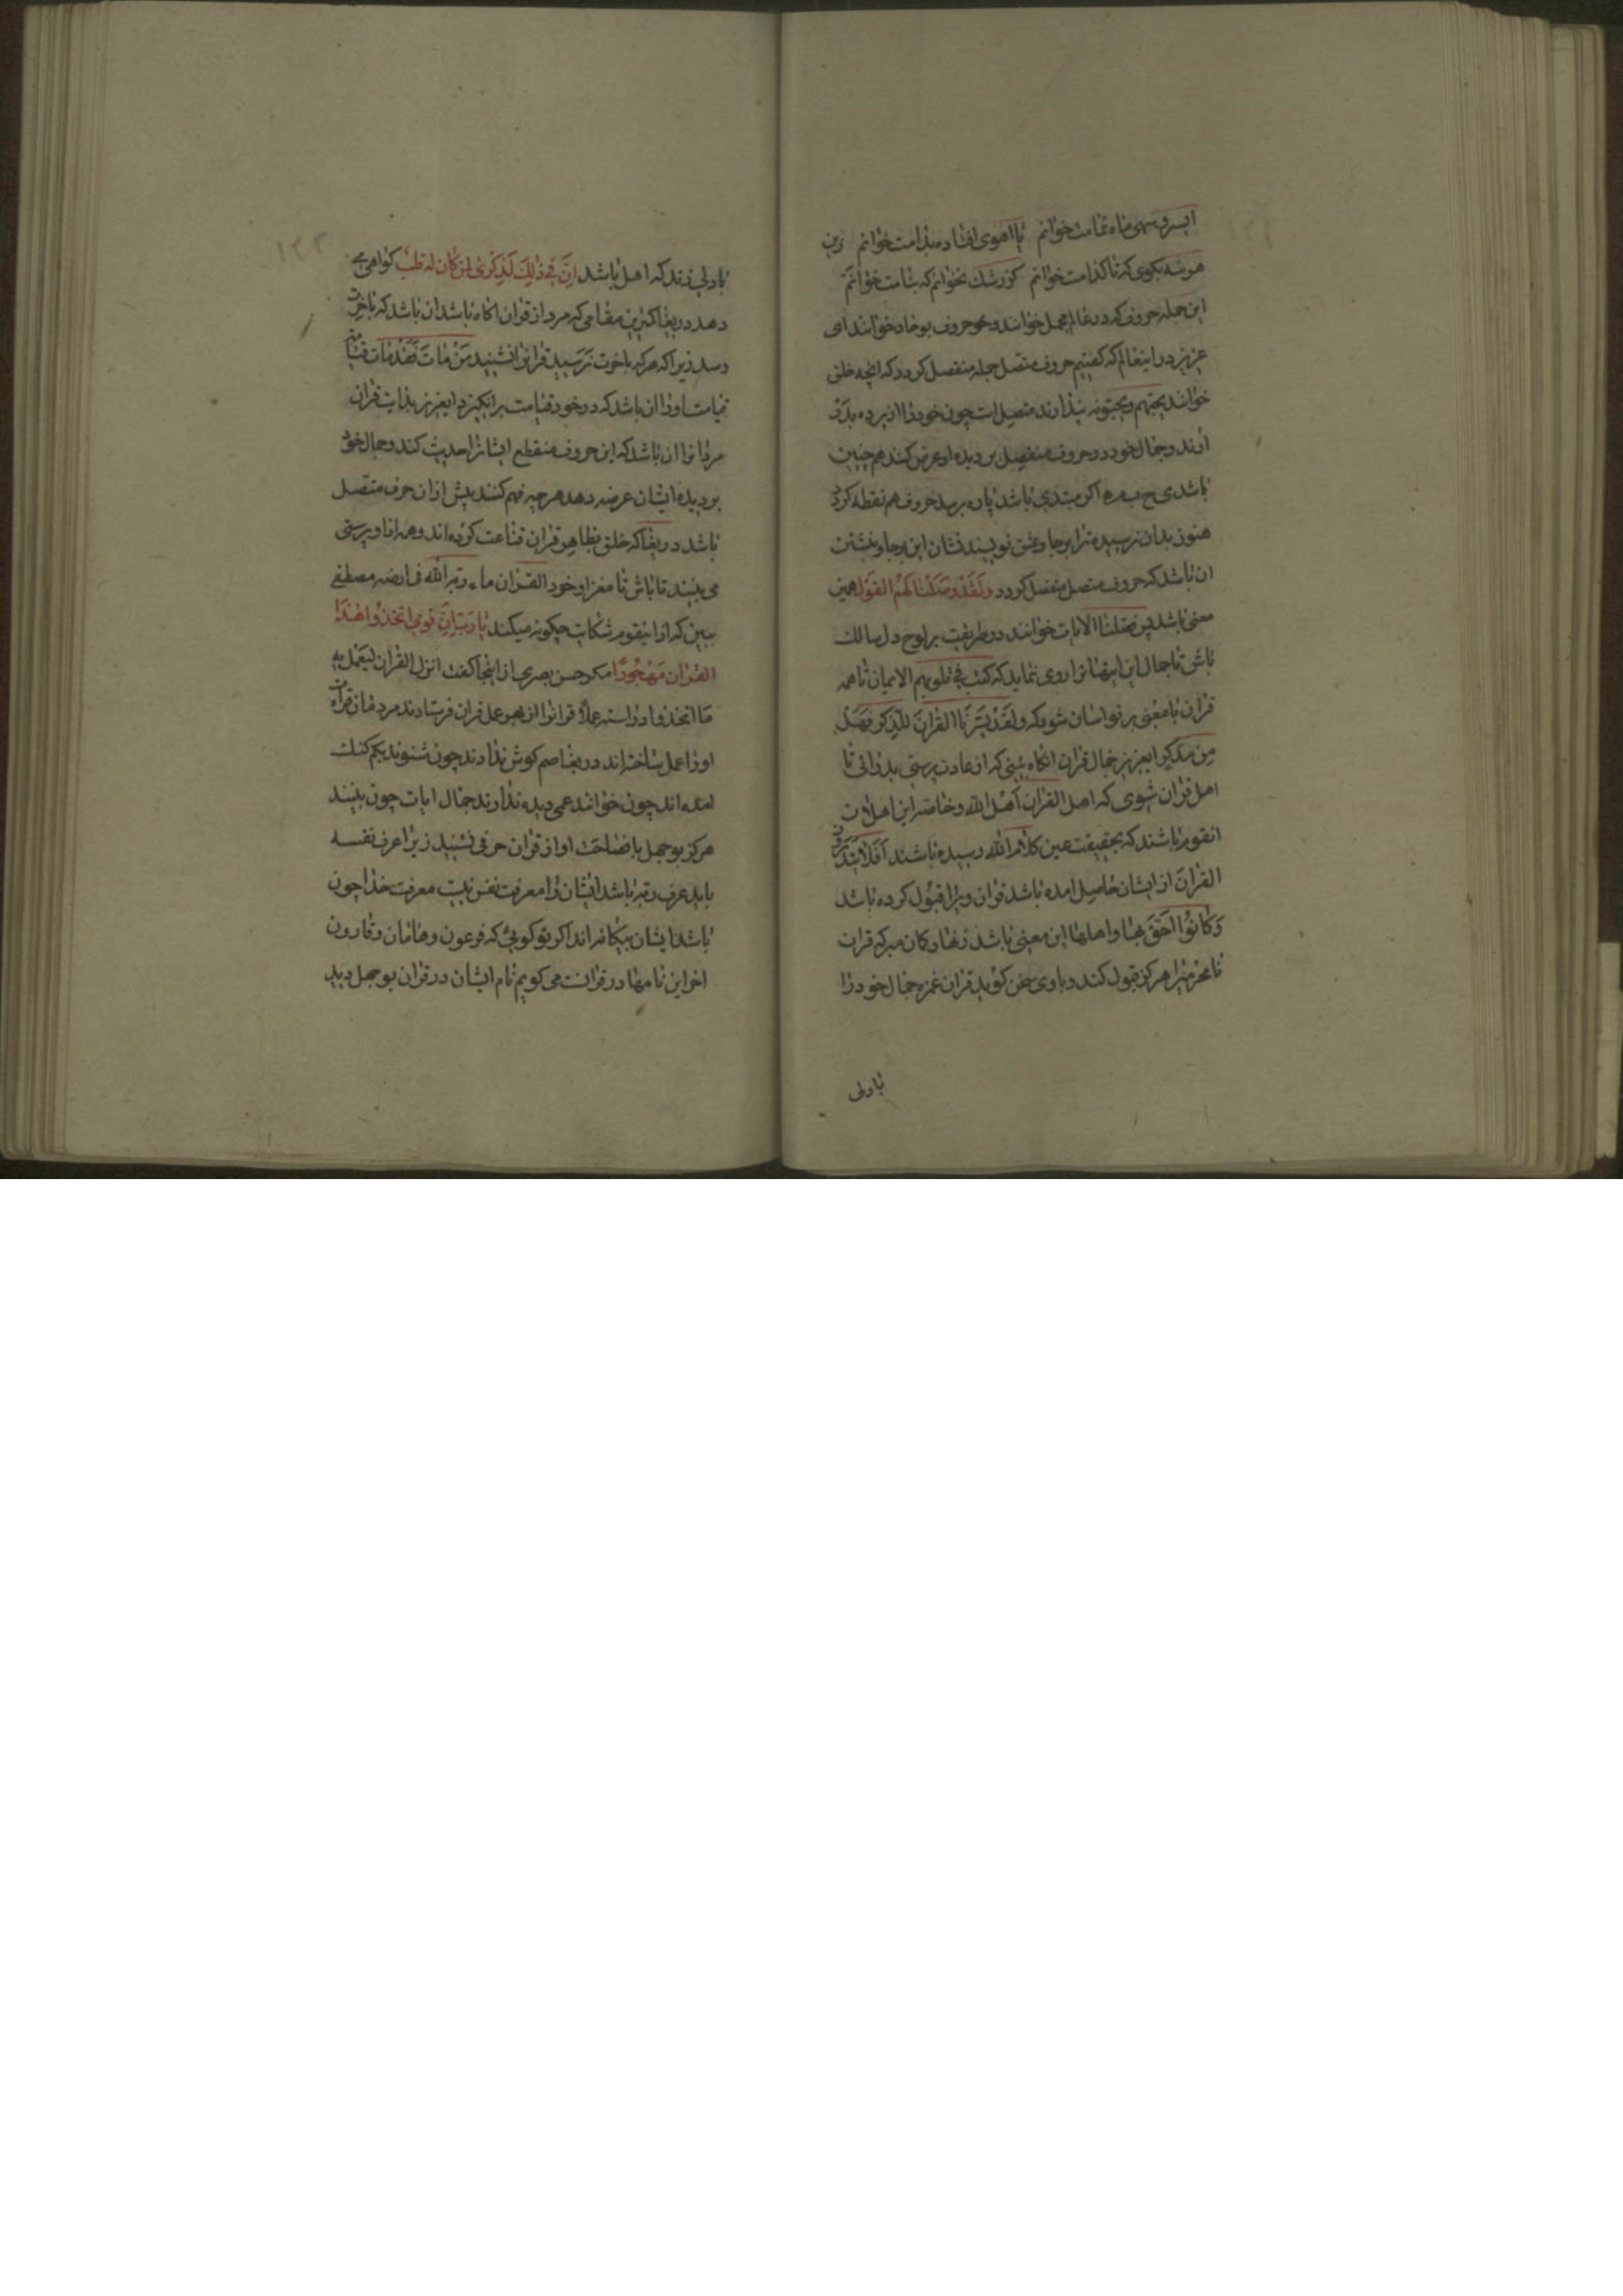 ای سرو سهی ماه تمامت خوانم یا اهوی افتاده بدامت خوانم زین
هر سه بکوی که تا کدامت خوانم کز رشک نخوانم که بنامت خوانم
این جمله حروف که در عالم مجمل خوانند و حروف ابجاد خوانند ای
عزیز در اینعالم که کفتیم حروف متصل جمله منفصل کردد که انچه خلق
خوانند یحبهم و یحبونه پندارند متصل است چون خود را از پرده بدر
آرند و جمال خود در حروف منفصل بر دیده او عرض کنند هم چنین
باشد ی ح ب ه م اکر مبتدی باشد پاره برسد حروف هم نقطه کردد
هنوز بدان نرسیده ترا بر جا و نویسند نشان این
ان باشد که حروف متصل منفصل کردد وَلَقَدْ وَصَّلْنَا لَهُمُ القَوْلَ همین
معنی باشد پس فصلنا الایات خوانند در طریقت بر لوح دل سالک
باش تا جمال این ایتها ترا روی نماید که کتب فی قلوبهم الایمان تا همه
قرآن بامعنی بر تو اسان شود که ولقد یَسَّرنَا القُرانَ للذِّکرِ فَهَل
مِن مدکر ایعزیز جمال قران انکاه بینی که از عادت پرستی بدر ائی تا
اهل قران شوی که اهل القران اَهْلُ الله وخاصته این اهلان
انقوم باشند که بحقیقت عین کلام الله رسیده باشند اَفَلا یَتَدَبَّرونَ
القرانَ از ایشان حاصل امده باشد قران ویرا قبول کرده باشد
وَکانُوا اَحَقَّ بها و اهلها این معنی باشد زنهار کمان مبر که قران
نامحرمیرا هرکز قبول کند و با وی سخن کوید قران غمزه جمال خود را
بادلی
بادلی زند که اهل باشد اِنَّ فِی ذٰلِکَ لَذِکْرٰی لِمَن کَانَ لَه قَلبٌ کواهی می
دهد دریغا کمترین مقامی که مرد از قران اکاه باشد ان باشد که باخرت
رسد زیرا که هرکه باخرت نرسید قرانرا نشنید مَنْ مَاتَ فَقَدْ قَامَت قیامته
قیامت او را ان باشد که در خود قیامت برانکیزد ایعزیز بدایت قران
مردانرا ان باشد که این حروف منقطع ایشانرا حدیث کند و جمال خود
بر دیده ایشان عرضه دهد هرچه فهم کنند پیش از ان حرف متصل
باشد دریغا که خلق بظاهر قران قناعت کرده اند و همه از او پوستی
می بینند تا باش تا مغز او خود القران مادبة الله فی ارضه مصطفی
ببین که از اینقوم شکایت چکونه میکند یَا رَبِّ اِنَّ قَومِی اتَّخَذُوا هٰذَا
القرانَ مَهْجُورًا مکر حسن بصری از اینجا کفت انزل القران لیعمل به
فاتخذوا دراسته عملا قرانرا از بهر عمل قران فرستادند مردمان قراءت
اورا عمل ساخته اند دریغا صم کوش ندارند چون شنوند بکم کنک
امده اند چون خوانند عمی دیده ندارند جمال ایات چون بینند
هرکز بوجهل با فصاحت او از قران حرفی نشنید زیرا عرف نفسه
باید عرف ربه باشد ایشان را معرفت نفس نیست معرفت خدا چون
باشد ایشان بیکانه اند اکر تو کویی که فرعون وهامان وقارون
اخر این نامها در قرانست می کویم نام ایشان در قران بوجهل دید